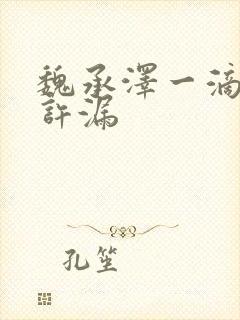 魏承澤一滴
許漏
孔笙